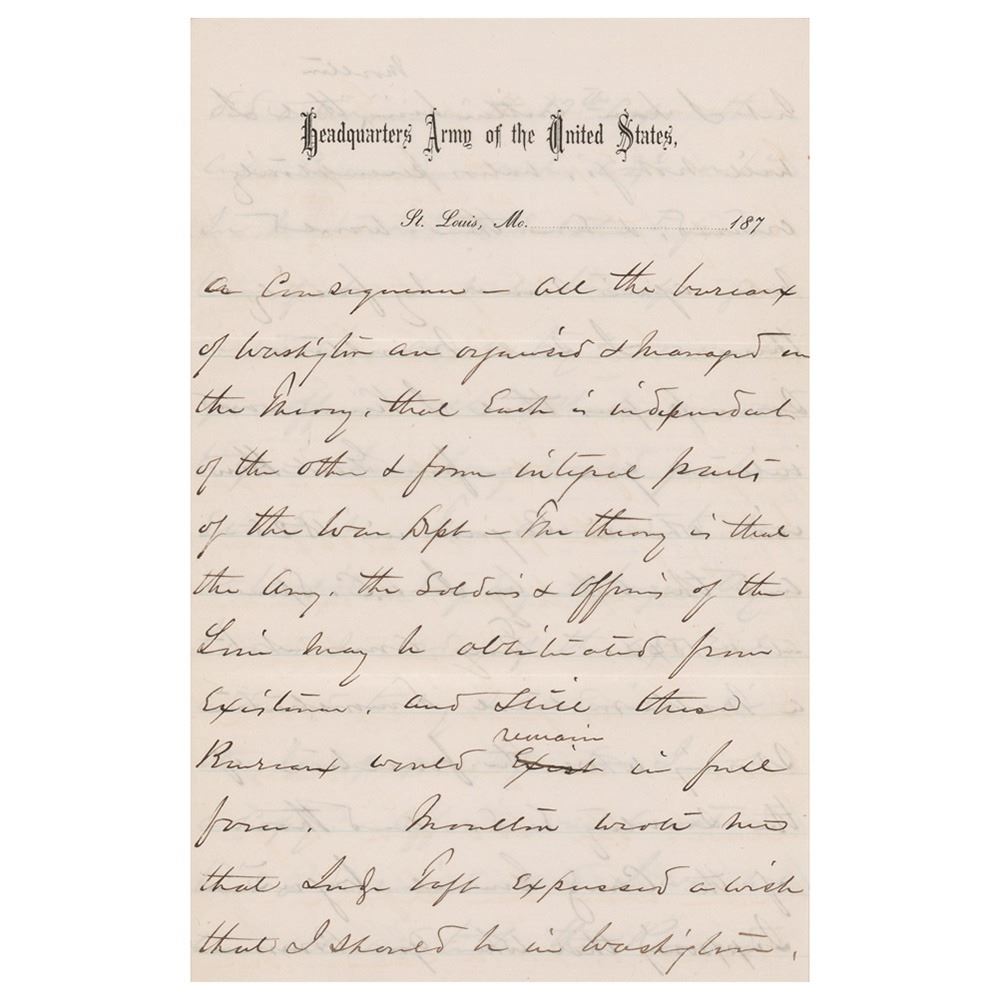 Headquarters Army of the United States,
St. Louis, Mo. 187
a Consequence – all the bureaux
of Washington are organised & managed on
the Theory, that Each is independent
of the other & form integral parts
of the War Dept – The theory is that
the Army, the Soldiers & Officers of the
Line may be obliterated from
Existence, and Still these
remain
Bureaux would Exist in full
force. Moulton wrote me
that Judge Taft Expressed a wish
that I should be in Washington,